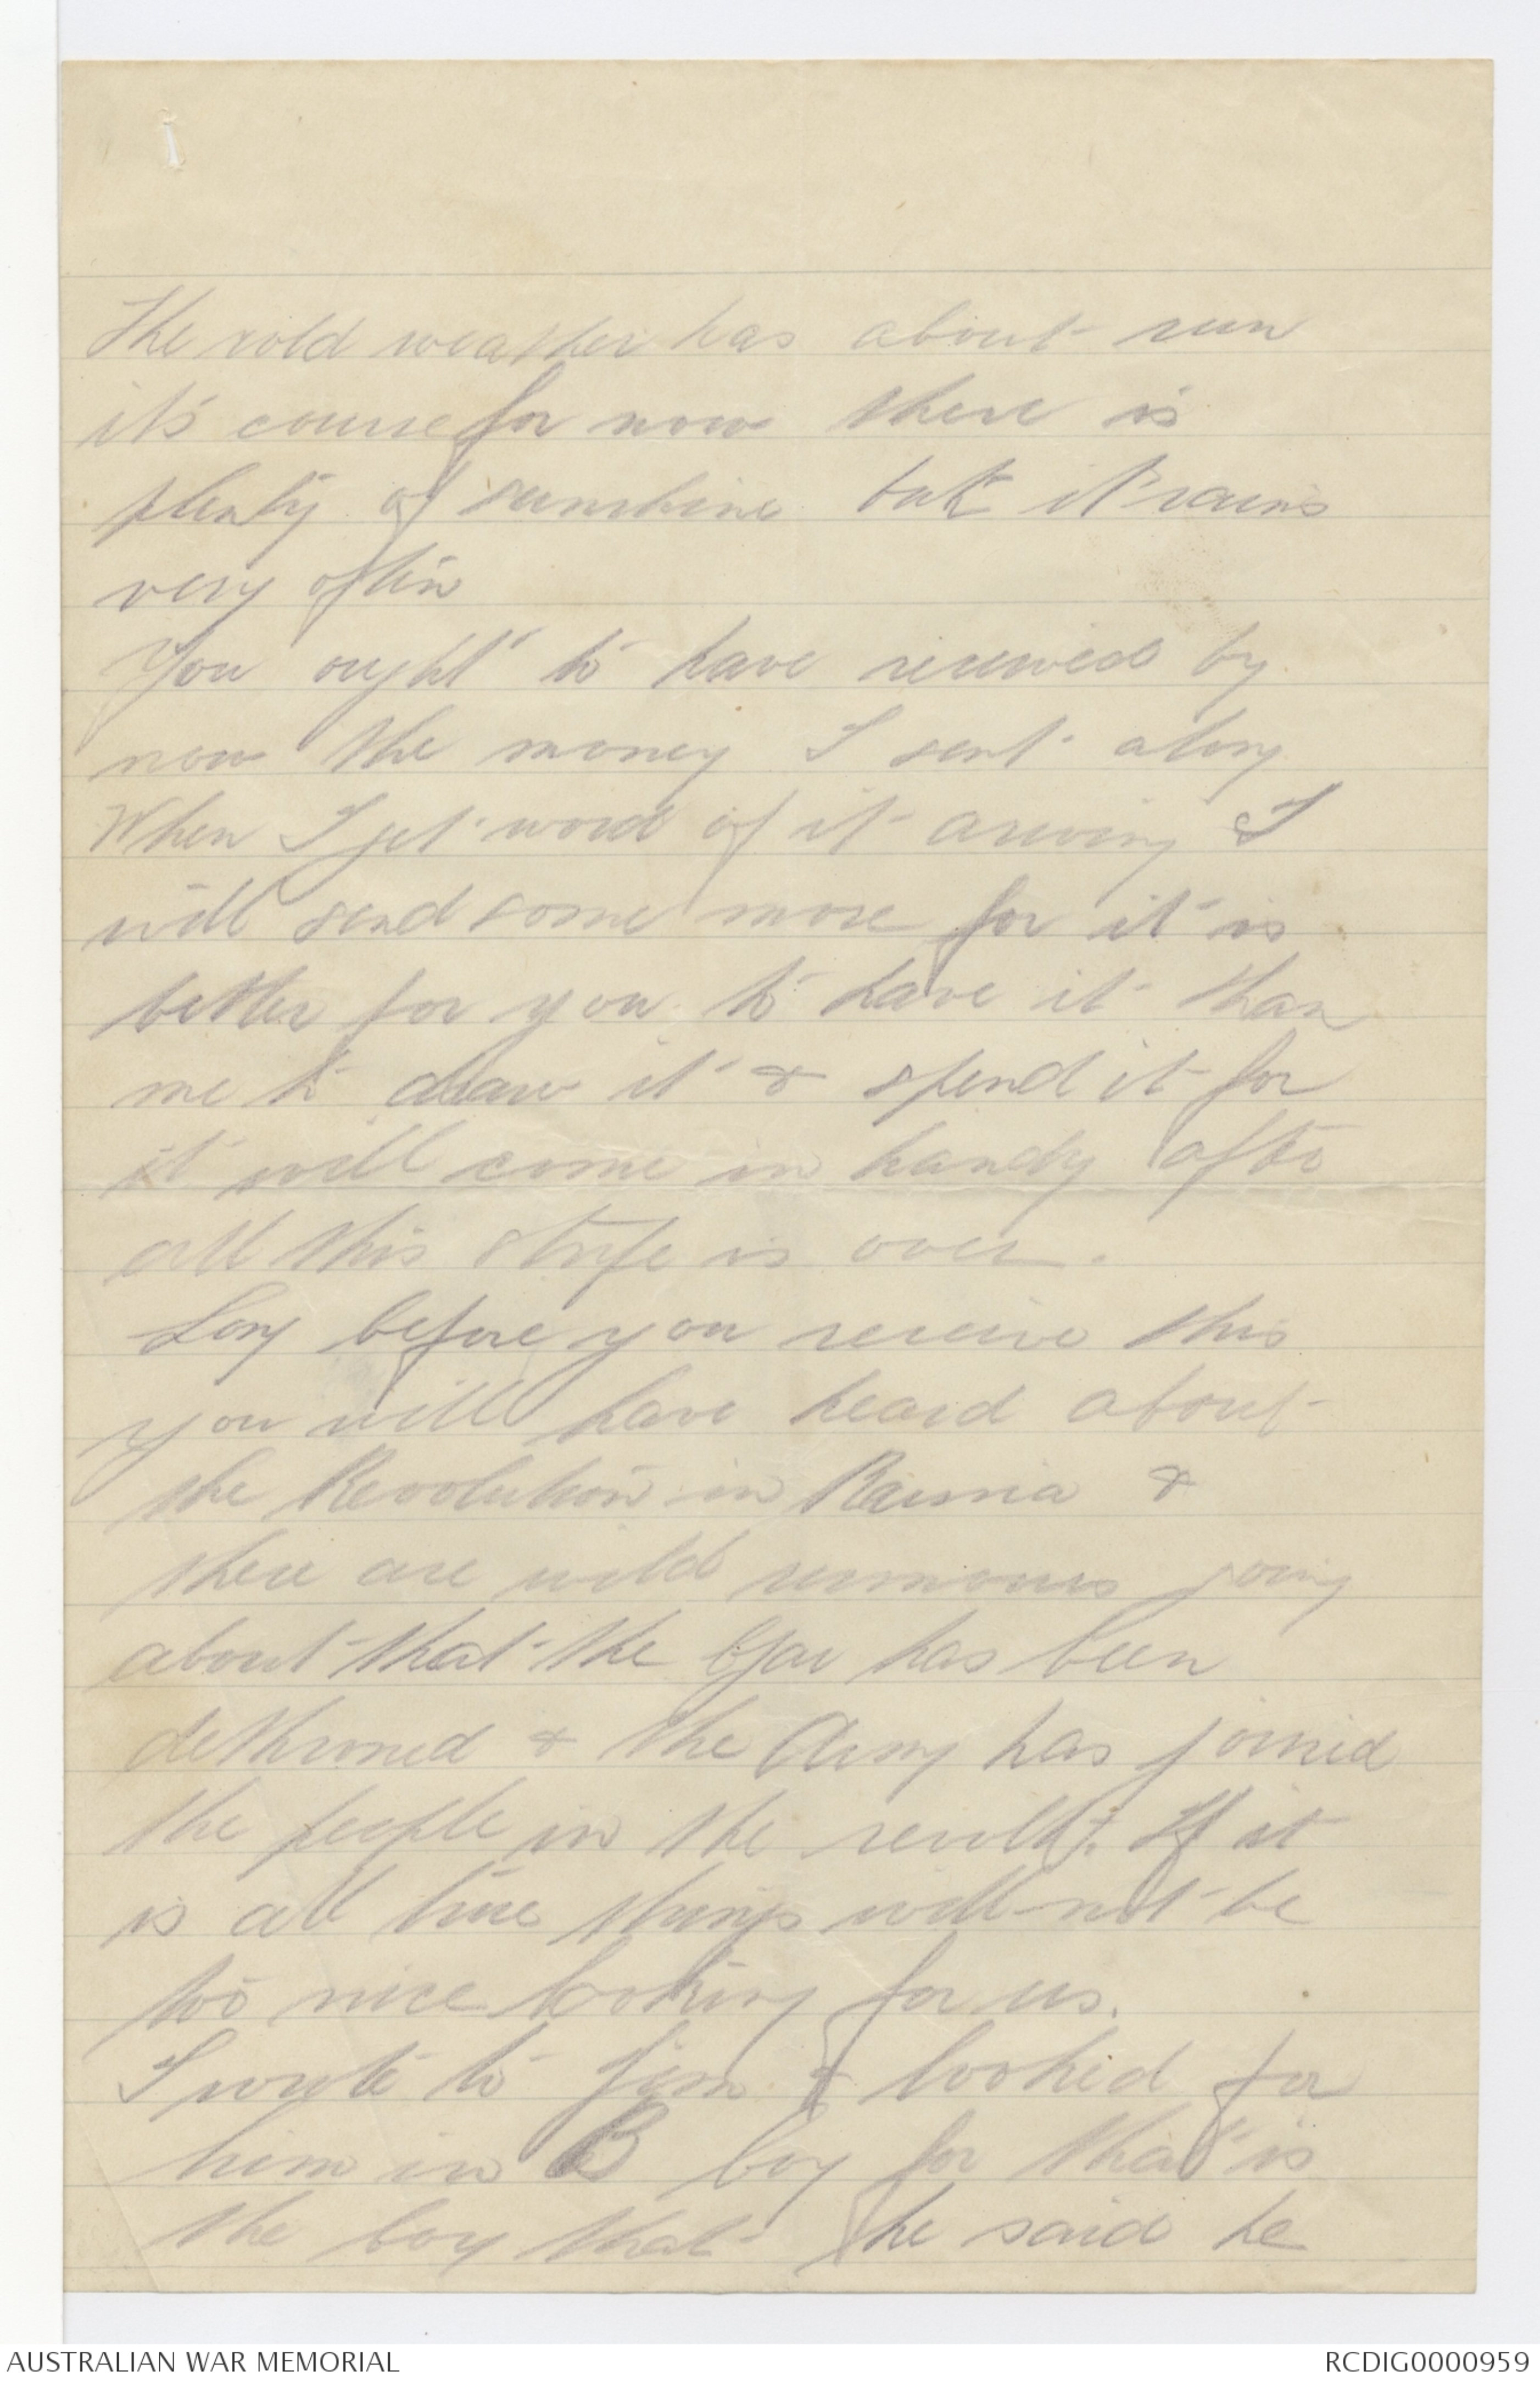 The cold weather has about run
it's course for now there is
plenty of sunshine but it rains
very often
You ought to have received by
now the money I sent along
When I get word of it arriving I
will send some more for it is
better for you to have it than
me to draw it & spend it for
it will come in handy after
all this strife is over.
Long before you receive this
you will have heard about
the Revolution in Russia &
there are wild rumours going
about that the Czar has been
dethroned & the Army has joined
the people in the revolt. If it
is all true things will not be
too nice looking for us.
I wrote to Jim & looked for
him in B Coy for that is
the Coy that he said he
AUSTRALIAN WAR MEMORIAL
RCDIG0000959